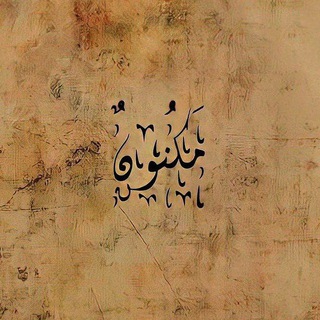 مَكنُونٌ